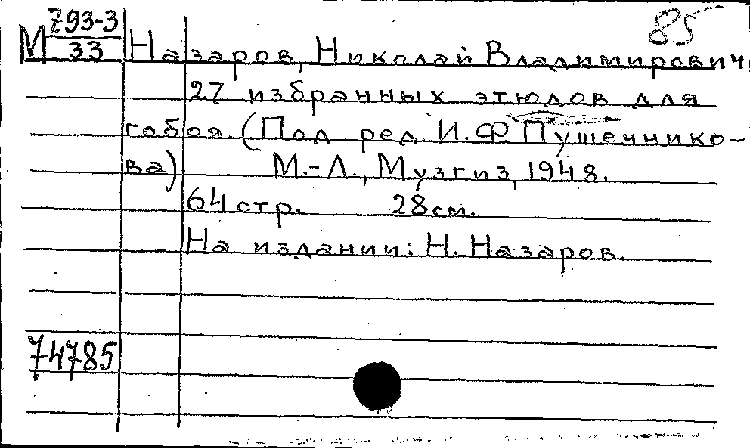 85
М 793-3
33
Назаров, Николай Владимирович,
27 избранных этюдов для
гобоя. (Под ред. И.Ф Пушечнико-
ва) М.-Л., Музгиз, 1948.
64 стр. 28 см.
На издании: Н. Назаров.
74785